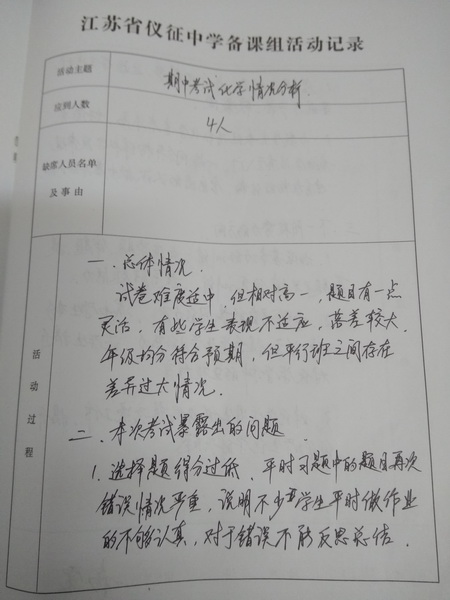 江苏省仪征中学备课组活动记录
活动主题
期中考试化学情况分析.
应到人数
4人
缺席人员名单
及事由
活动过程
一.总体情况.
试卷难度适中,但相对高一,题目有一点
灵活,有些学生表现不适应,落差较大.
年级均分符合预期,但平行班之间存在
差异过大情况.
二.本次考试暴露出的问题
1.选择题得分过低.平时习题中的题目再次
错误情况严重,说明不少学生平时做作业
的不够认真,对于错误不能反思总结.